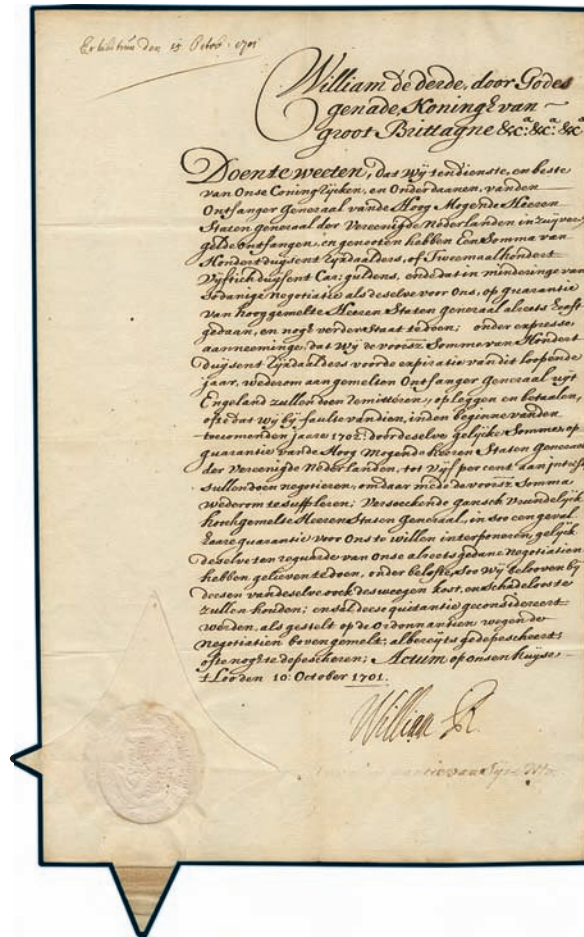 Exhibitum den 15 Octob: 1701
William de derde, door Godes
genade, Koningh van
groot Brittagne &c:a &c:a &c:a
Doen te weeten, dat Wij ten dienste, en beste
van Onse Coningrijcken, en Onderdaanen, van den
Ontfanger Generaal van de Hoog Mogende Heeren
Staten Generaal der Vereenigde Nederlanden in zuijver
gelde ontfangen, en genooten hebben Een Somma van
Hondert duysent Rijxdaalders, of Tweemaal hondert
Vijftich duysent Car: guldens, ende dat in minderinge van
Sodanige negotiatie als deselve voor Ons, op guarantie
van hooggemelte Heeren Staten Generaal alreets heeft
gedaan, en nogh verder staat te doen; onder expresse
aanneeminge, dat Wij de voorsz Somme van Hondert
duysent Rijxdaalders voor de expiratie van dit loopende
jaar, wederom aan gemelten Ontfanger Generaal uijt
Engeland zullen doen remitteren, opleggen en betaalen,
ofte dat wij bij faulte van dien, in den beginne van den
toecomenden jaere 1702. door deselve gelijcke Somme, op
guarantie van de Hoog Mogende heeren Staten Generaal
der Vereenigde Nederlanden, tot Vijf per cent aan
sullen doen negotieren, om daar mede de voorsz Somma
wederom te suppleren; Versoeckende gansch Vrundelijck
hoochgemelte Heeren Staten Generaal, in soo een geval
haare guarantie voor Ons te willen interponeren, gelijck
deselve ten reguarde van Onse alreets gedane Negotiatien
hebben gelieven te doen, onder belofte, Soo Wij belooven bij
deesen van deselve oock desweegen kost, en schadeloos te
zullen houden; en sal deese quitantie geconsidereert
werden, als gestelt op de Ordonnantien wegen de
Negotiatien boven gemelt, albereyts gedepescheert,
ofte nogh te depescheren; Actum op onsen huijse
t Loo den 10: October 1701.
William R
van Sijne